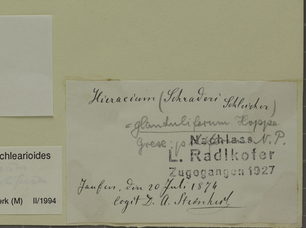 Hieracium (Schraderi Schleicher)
= glanduliferum Hoppe
N. P.
Nachlass
L. Radlkofer
Zugegangen 1927
Jaufen, den 20 Juli 1874
legit Dr. A.
chlearioides
erk (M) II/1994